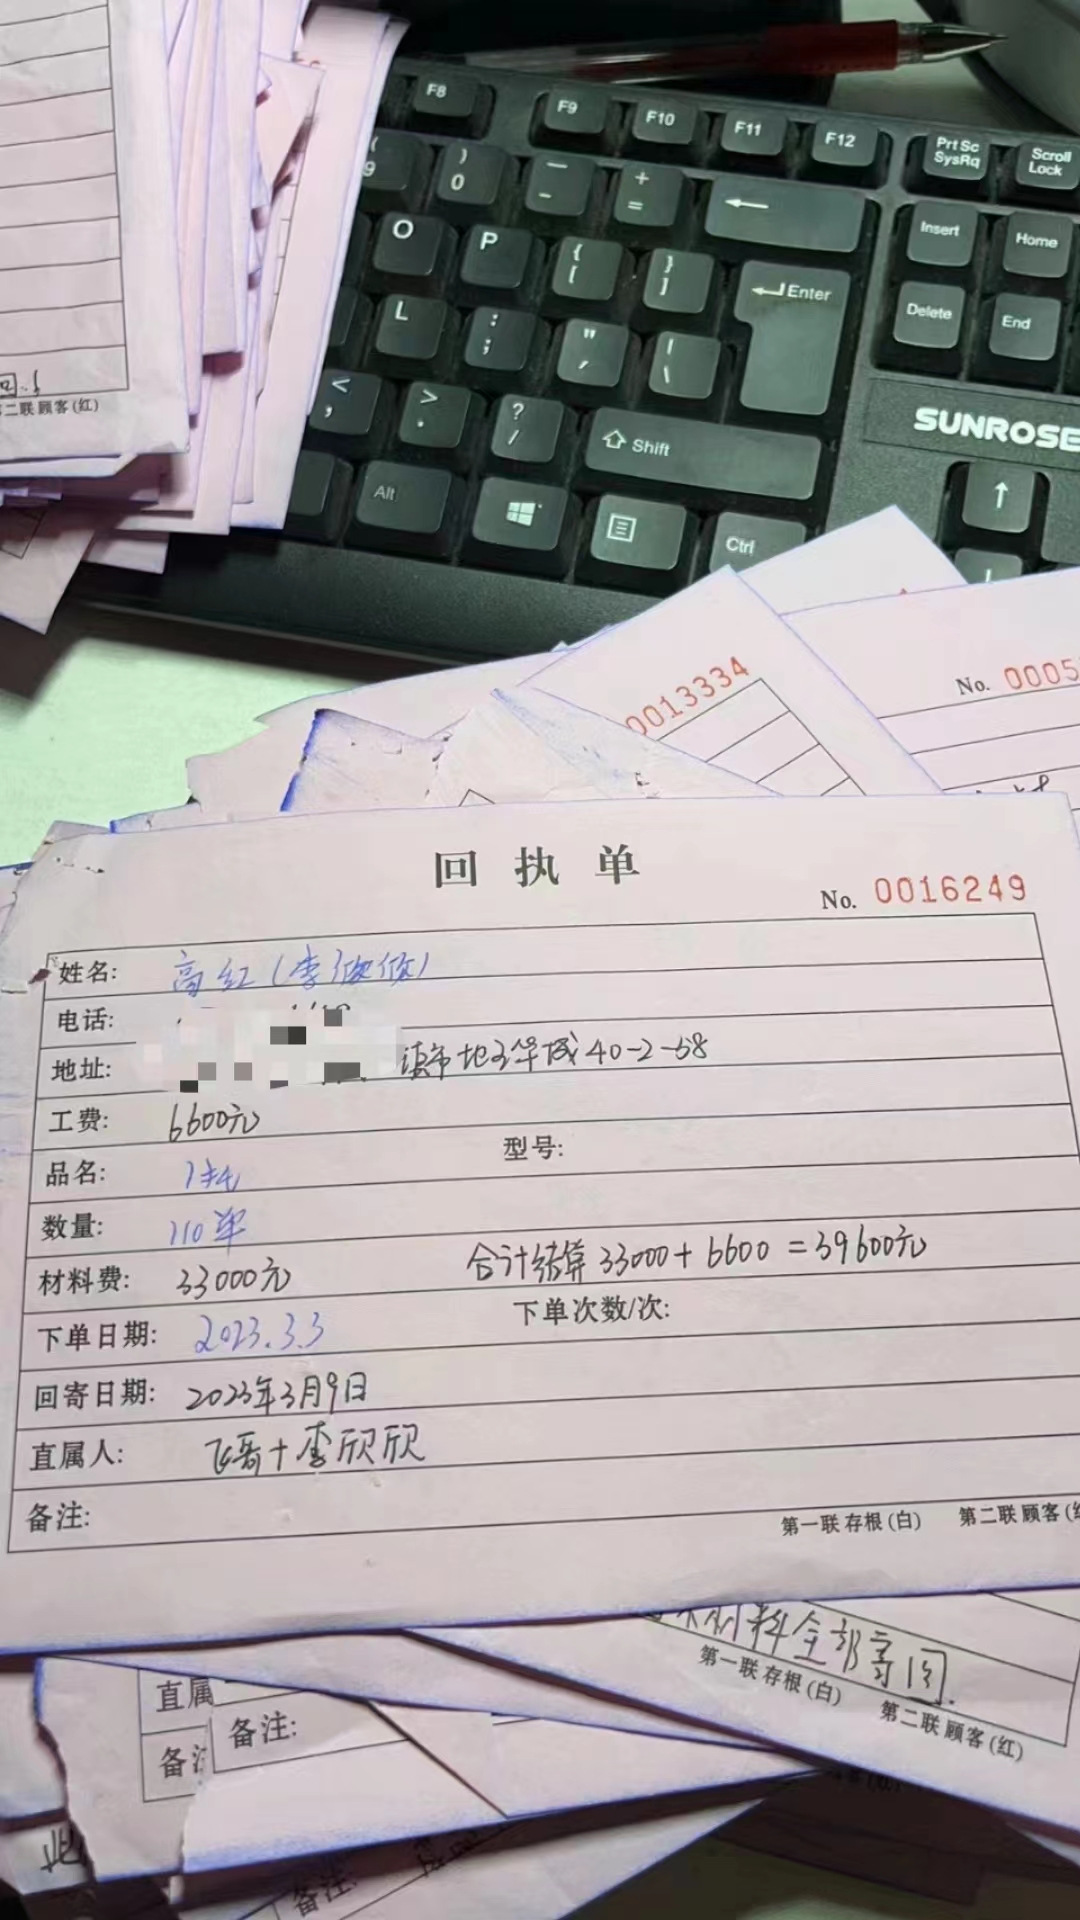 F8 F9 F10 F11 F12 Prt Sc SysRq Scroll Lock
( 9 ) 0 — - + = ←
O P { [ } ] Enter Insert Home
L : ; " ' | \ Delete End
< , > . ? / Shift SUNROSE
Alt Ctrl ↑
第二联 顾客(红)
0013334
No. 0005
回执单
No. 0016249
姓名: 高红(李欣欣)
电话:
地址: 地王华城40-2-58
工费: 6600元
型号:
品名:
数量: 110单
材料费: 33000元 合计结算 33000+6600=39600元
下单日期: 2023.3.3 下单次数/次:
回寄日期: 2023年3月9日
直属人: 飞哥+李欣欣
备注:
第一联 存根(白) 第二联 顾客(
材料全部寄回.
第一联 存根(白) 第二联 顾客(红)
直属
备注:
备注:
备注: